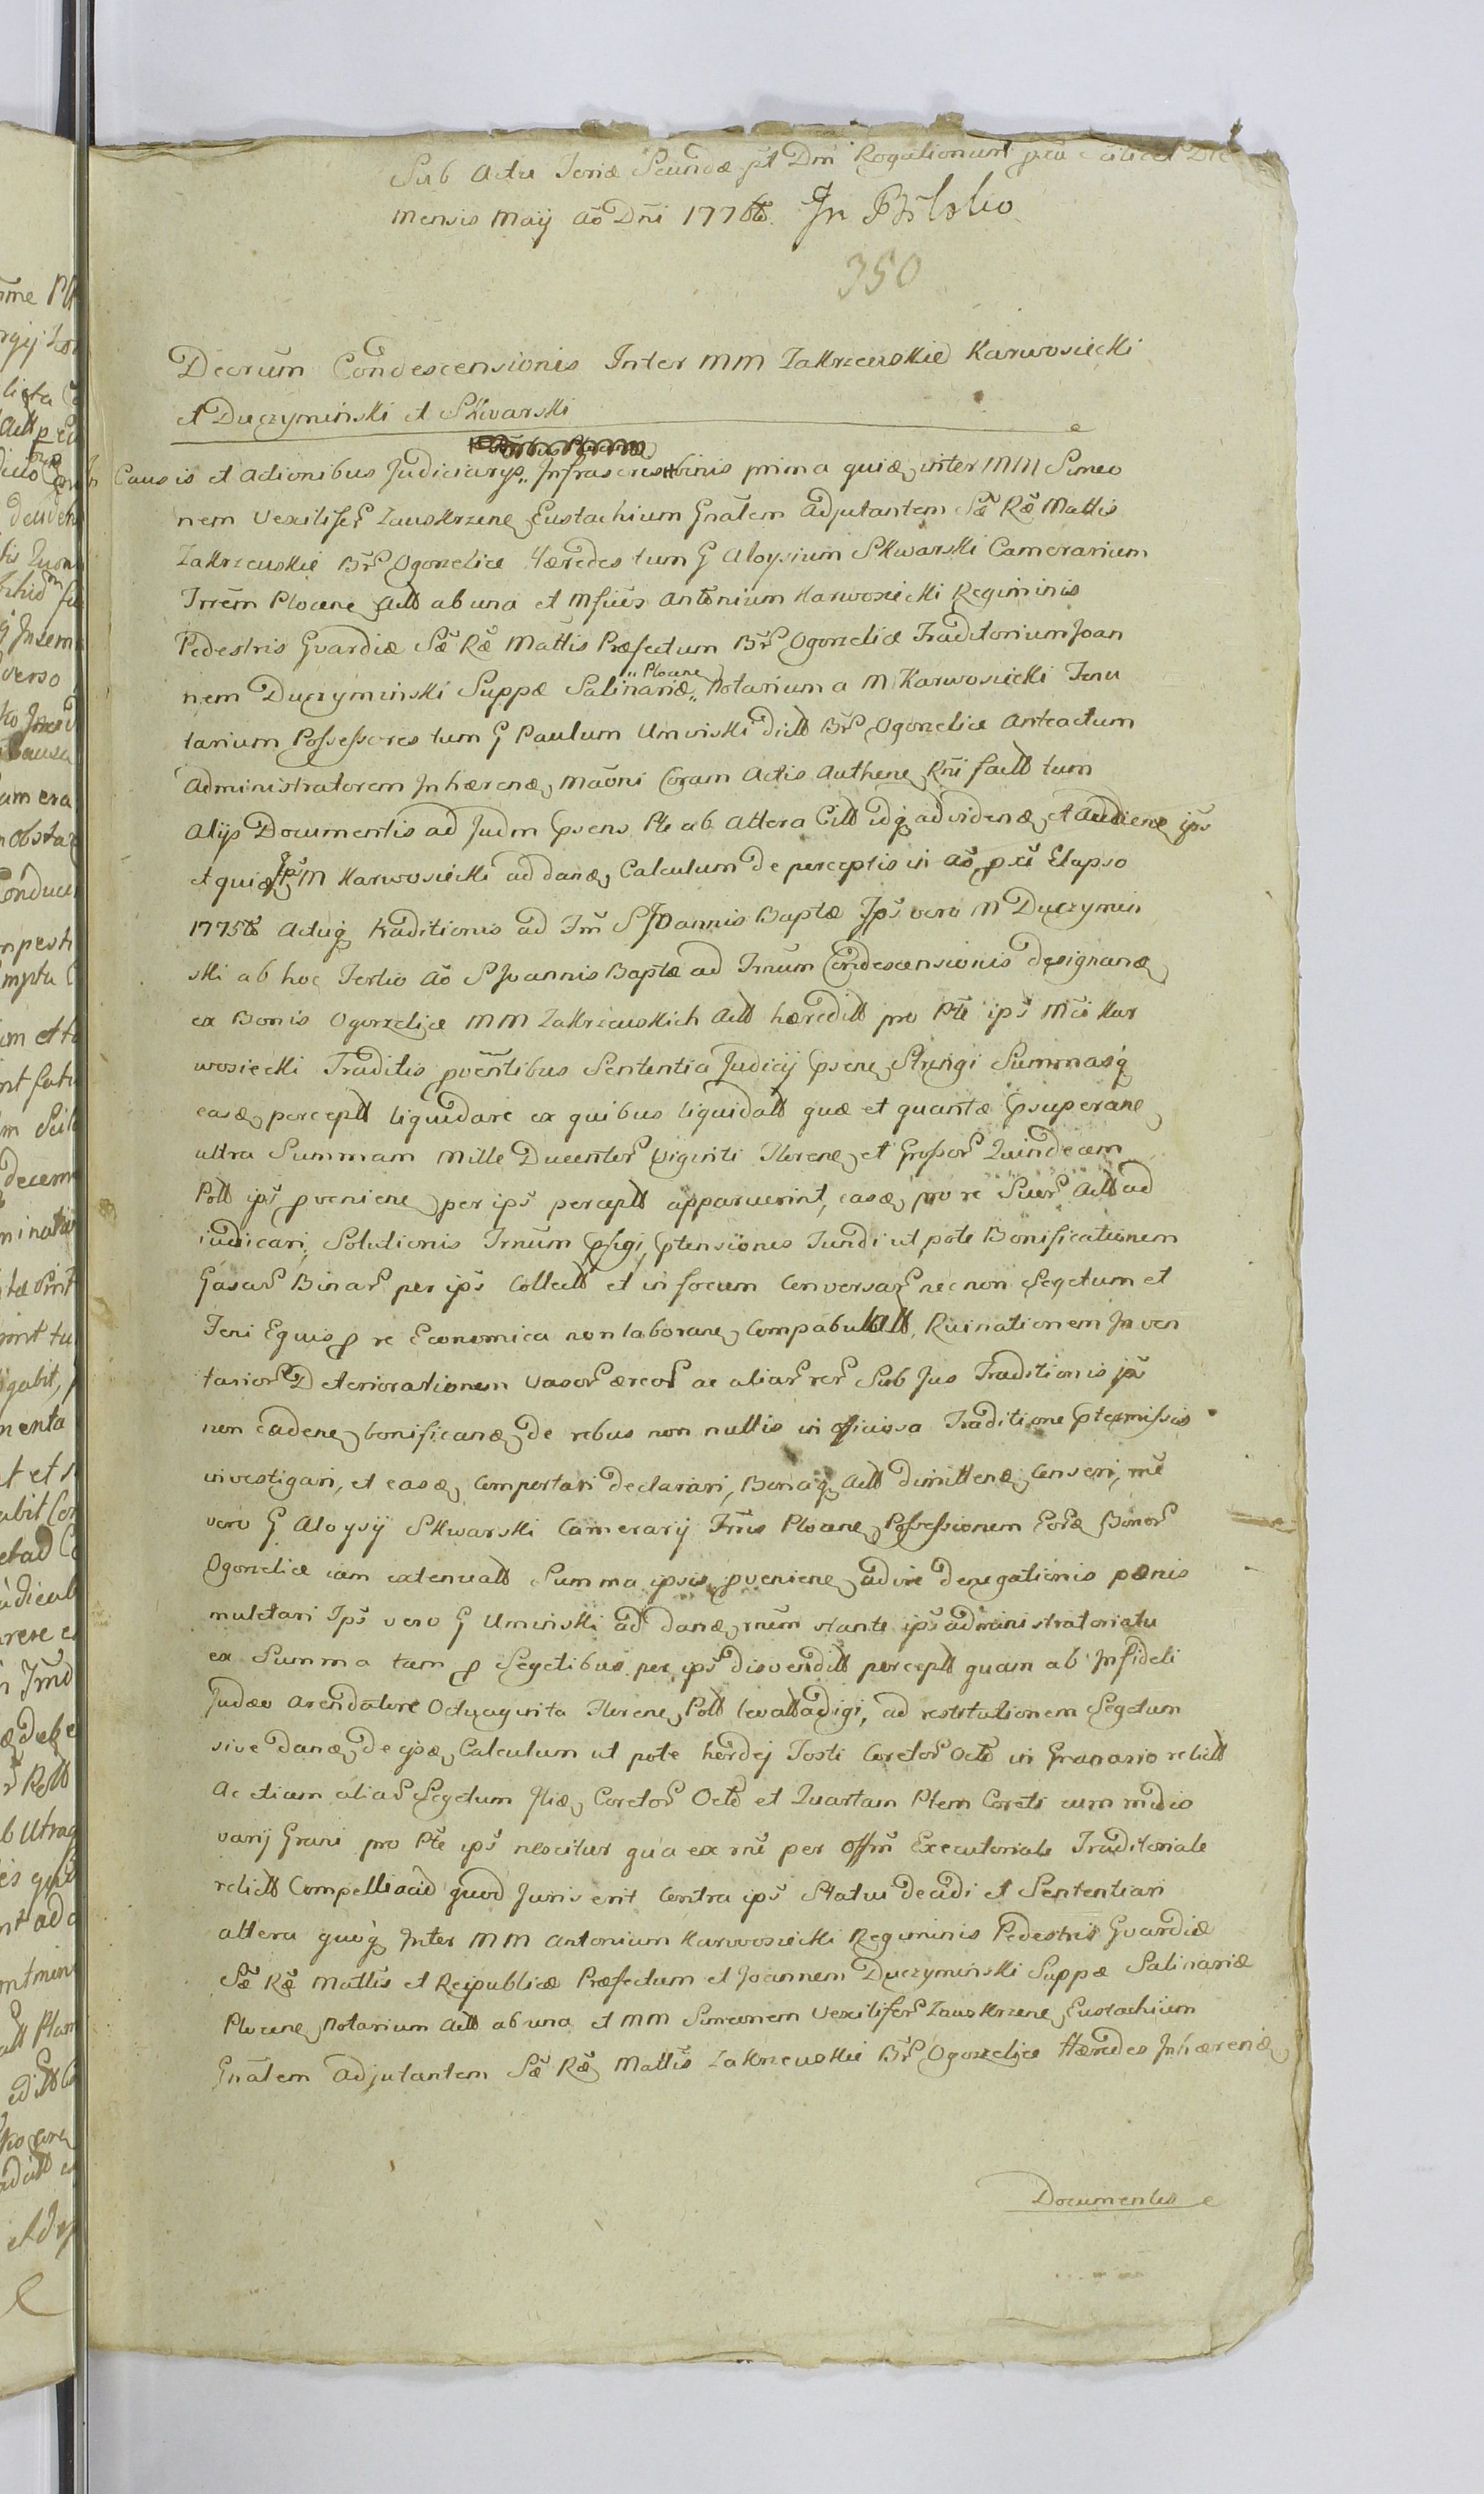 Sub Actu Feriæ Secundæ pt Dm̄ Rogationum
mensis Maij Ao Dni 1776to In Bielsko
350
Decrum Condescensionis Inter MM Zakrzewskie Karwosiecki
et Duczyminski et Skwarski
Causis et Actionibus Judiciarys Infrascris binis prima quiæ inter MM Simeo
nem Vexilifer Zauskrzene Eustachium Gnalem Adjutantem Sæ Ræ Mattis
Zakrzewskie Br Ogorzelice Hæredes tum G Aloysium Skwarski Camerarium
Trrem Plocene Actt ab una et Mficus Antonium Karwosiecki Regiminis
Pedestris Gvardiæ Sæ Ræ Mattis Præfectum Br Ogorzelice Traditorium Joan
nem Duczyminski Suppæ Salinariæ Plocene Notarium a M Karwosiecki Tenu
tarium Possessores tum G Paulum Uminski dictt Br Ogorzelice Anteactum
Administratorem Inhærenæ Maoni Coram Actis Authene Rni factt tum
Alijs Documentis ad Judm Psens Pte ab Altera Citt idq advidenæ et Audiene ips
et quiæ Ips M Karwosiecki addanæ Calculum de perceptis in Ao pxe Elapso
1775to Actuq traditionis ad Fm S Joannis Baptæ Ips vero M Duczymin
ski ab hoc Festo Ao S Joannis Baptæ ad Trnum Condescensionis designanæ
ex Bonis Ogorzelice MM Zakrzewskich Actt hæreditt pro Pte ips Mci Kar
wosiecki Traditis pventibus Sententia Judicij Psene Stringi Summasq
easæ perceptt liquidare ex quibus liquidatt quæ et quantæ Psuperane
ultra Summam Mille Ducentor Viginti Florene et Grossor Quindecem
Pott ips pveniene per ips perceptt apparuerint, easæ pro re Suer Actt ad
iudicari, Solutionis Trnum Pfigi, Ptensiones Fundi ut pote Bonificationem
Casar Binar per ips Collatt et in focum Conversar nec non Segetum et
Feni Equis p re Economica non laborane Compabulatt, Ruinationem Inven
tarior Deteriorationem vasor æreor ac aliar rer Sub Jus Traditionis ips
non cadene bonificanæ de rebus non nullis in officiosa Traditione Ptermissis
investigari, et easæ Comportari declarari, Bonaq Actt dimittenæ Censeri, me
vero G Aloysij Skwarski Camerarij Trris Plocene Possessionem Eoræ Bonor
Ogorzelice iam extenuatt Summa ipsis pveniene ad ire denegationis pænis
mulctari Ips vero G Uminski ad danæ rnum stante ips administratoriatu
ex Summa tam p Segetibus per ips disvenditt perceptt quam ab Infideli
Judæo Arendatore Octuaginta Florene Pott levatt adigi, ad restitutionem Segetum
sive danæ de ijsæ Calculum ut pote hordej Tosti Coretor Octo in Granario relictt
Ac etiam aliar Segetum Iliæ Coretor Octo et Quartam Ptem Coreti cum medio
varij Grani pro Pte ips nescitur qua ex rne per Offm Executoriale Traditoriale
relictt Compelli acid quod Juris erit Contra ips Statui decidi et Sententiari
altera quoq Inter MM Antonium Karwosiecki Regiminis Pedestris Gvardiæ
Sæ Ræ Mattis et Reipublicæ Præfectum et Joannem Duczyminski Suppæ Salinariæ
Plocene Notarium Actt ab una et MM Simeonem Vexilifer Zauskrzene Eustachium
Gnalem Adjutantem Sæ Ræ Mattis Zakrzewskie Br Ogorzelice Hæredes Inhærenæ
Documentis